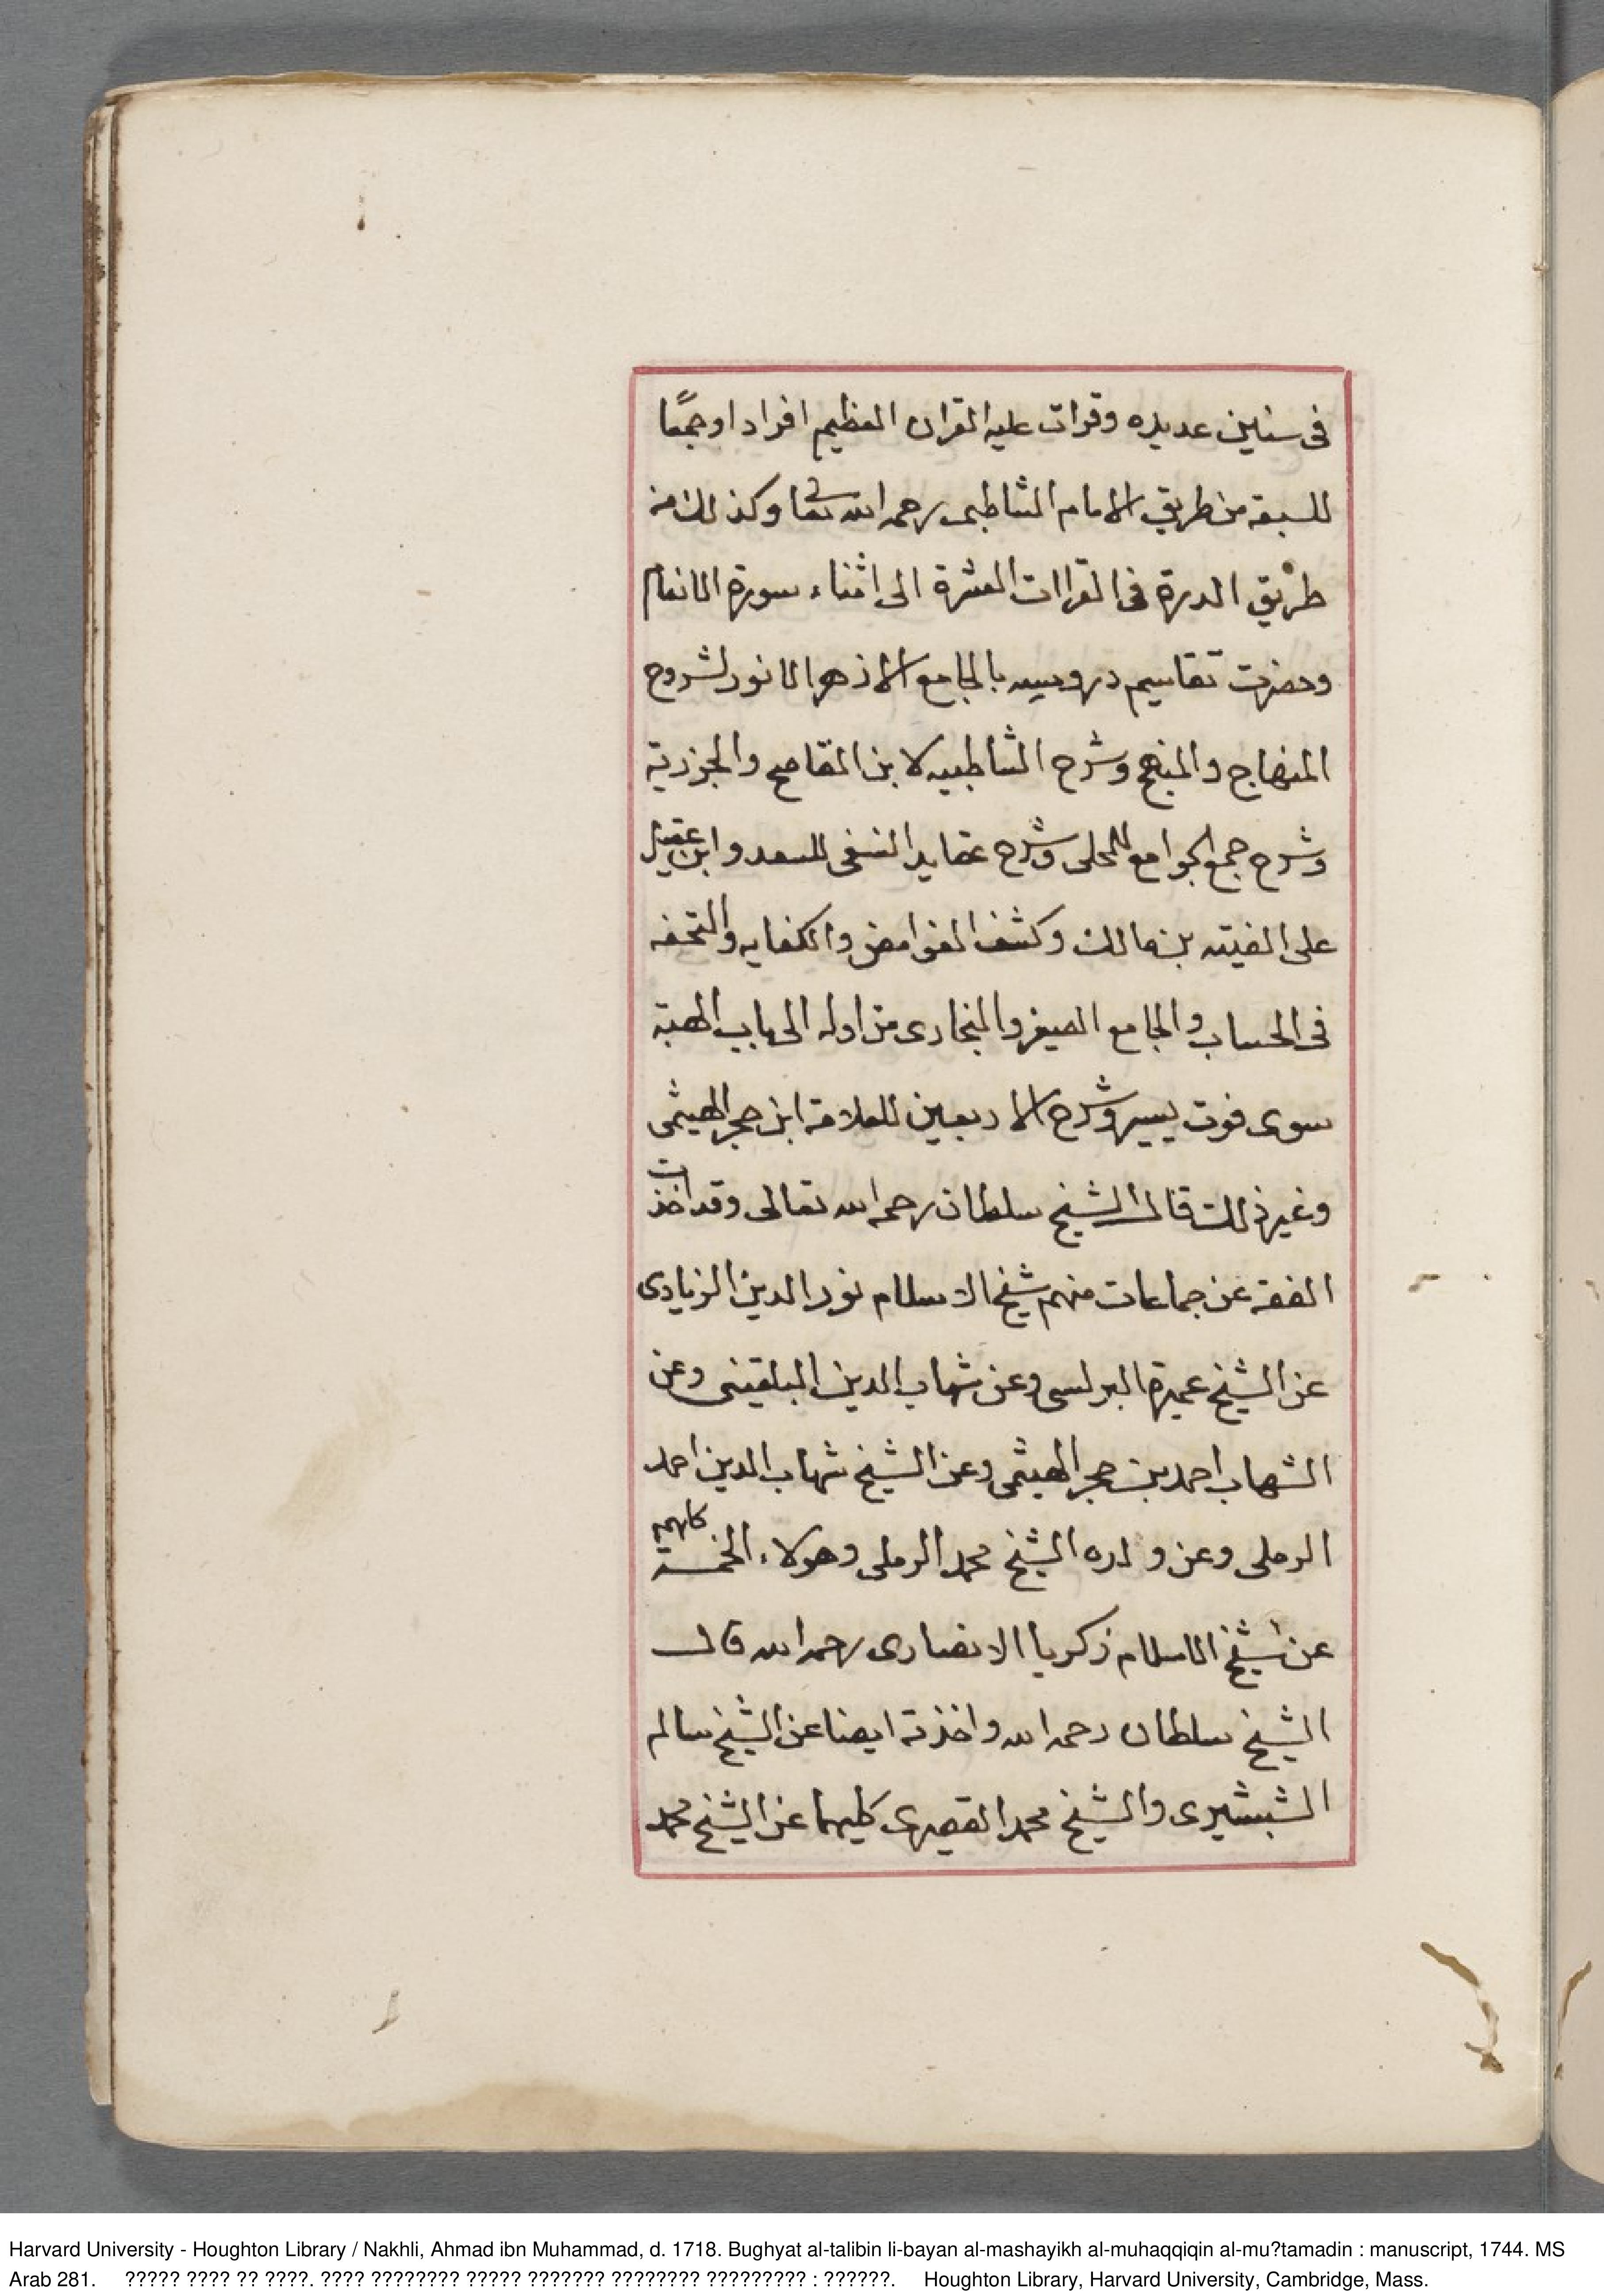 فى سنين عديده وقرات عليه القران العظيم افرادا وجمعًا
للسبعة من طريق الامام الشاطبى رحمه الله تعالى وكذلك من
طريق الدرة فى القراات العشرة الى اثناء سورة الانعام
وحضرت تقاسيم دروسه بالجامع الازهر الانور لشروح
المنهاج والمنهج وشرح الشاطبيه لابن القاصح والجزرية
وشرح جمع الجوامع للمحلى وشرح عقايد النسفى للسعد وابن عقيل
على الفيته بن مالك وكشف الغوامض والكفايه والتحفه
فى الحساب والجامع الصغير والبخارى من اوله الى باب الهبة
سوى فوت يسير وشرح الاربعين للعلامة ابن حجر الهيثمى
وغير ذلك قال الشيخ سلطان رحمه الله تعالى وقد اخذت
الفقه عن جماعات منهم شيخ الاسلام نور الدين الزيادى
عن الشيخ عميرة البرلسى وعن شهاب الدين البلقينى وعن
الشهاب احمد بن حجر الهيثمى وعن الشيخ شهاب الدين احمد
الرملى وعن ولده الشيخ محمد الرملى وهولاء الخمسة كلهم
عن شيخ الاسلام زكريا الانصارى رحمه الله قال
الشيخ سلطان رحمه الله واخذته ايضا عن الشيخ سالم
الشبشيرى والشيخ محمد القصرى كليهما عن الشيخ محمد
Harvard University - Houghton Library / Nakhli, Ahmad ibn Muhammad, d. 1718. Bughyat al-talibin li-bayan al-mashayikh al-muhaqqiqin al-mu?tamadin : manuscript, 1744. MS
Arab 281. ????? ???? ?? ????. ???? ???????? ????? ??????? ???????? ????????? : ??????. Houghton Library, Harvard University, Cambridge, Mass.